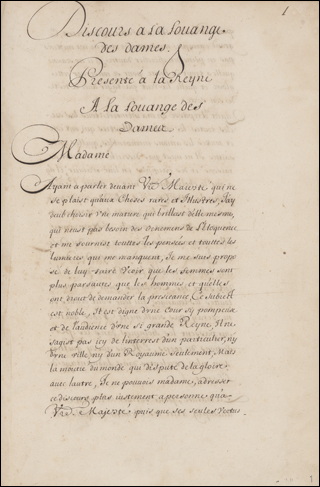 1
Discours a la Louange
des dames.
Presenté a la Reyne
A la Louange des
Dames
Madame
Ayant a parler deuant Vre Maiesté qui ne
se plaist qu'aux choses rares et Illustres, J'ay
deub choisir vne matiere qui brillast d'elle mesme,
qui n'eust pas besoin des ornemens de l'Eloquence
et me fournist touttes les pensées et touttes les
lumieres qui me manquent, Je me suis propo
sé de luy faire Voir que les femmes sont
plus parfaites que les hommes et qu'elles
ont droit de demander la preseance. Ce subiect
est noble, Il est digne d'vne Cour sy pompeuse
et de l'audience d'vne sy grande Reyne, Il ne
s'agist pas icy de l'interest d'vn particulier, ny
d'vne ville ny d'un Royaume seulement, Mais
la moitié du monde qui dispute de la gloire
auec lautre, Je ne pouuois madame, adresser
ce discours plus iustement a personne qu'a
Vre Majesté puis que ses seules vertus
1